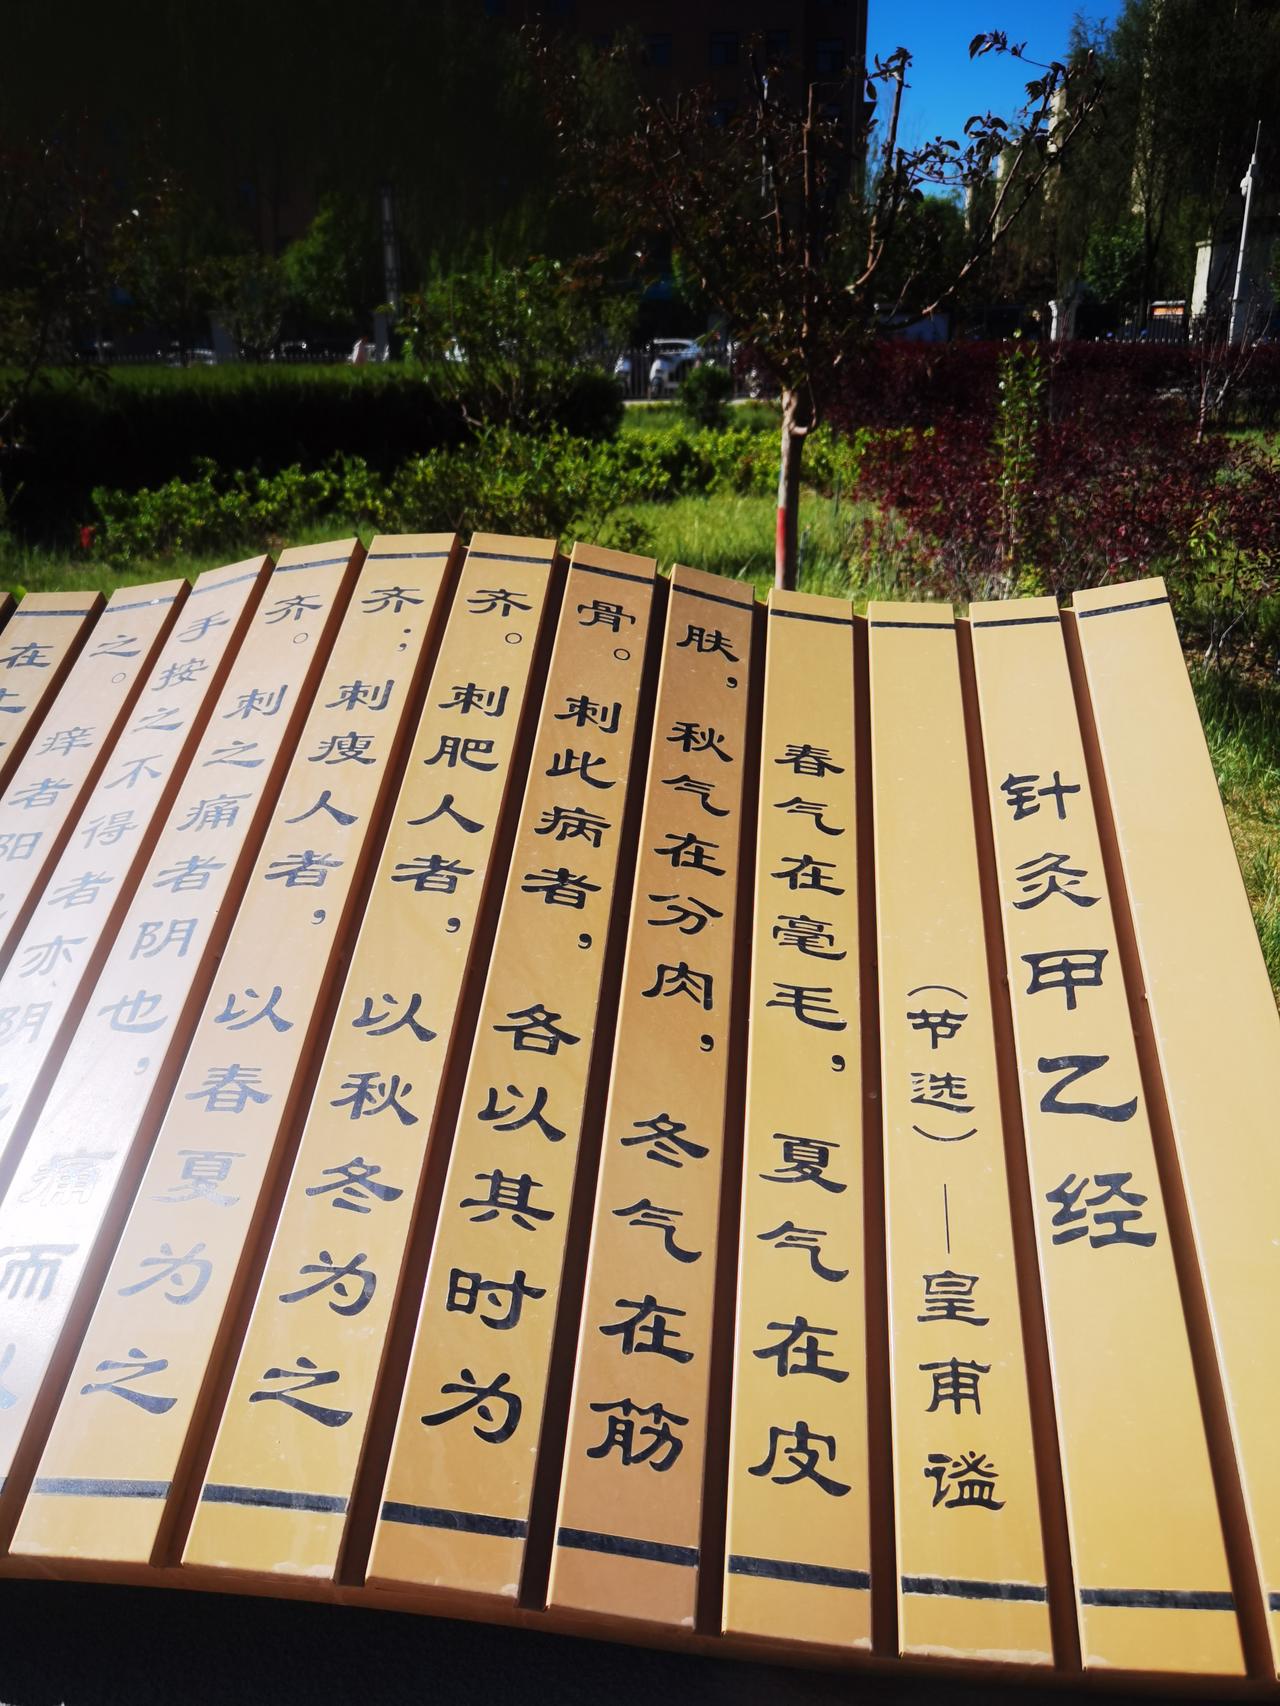 针灸甲乙经
（节选）——皇甫谧
春气在毫毛，夏气在皮
肤，秋气在分肉，冬气在筋
骨。刺此病者，各以其时为
齐。刺肥人者，以秋冬为之
齐；刺瘦人者，以春夏为之
齐。刺之痛者阴也，痛
手按之不得者亦阴
之。痒者阳
在